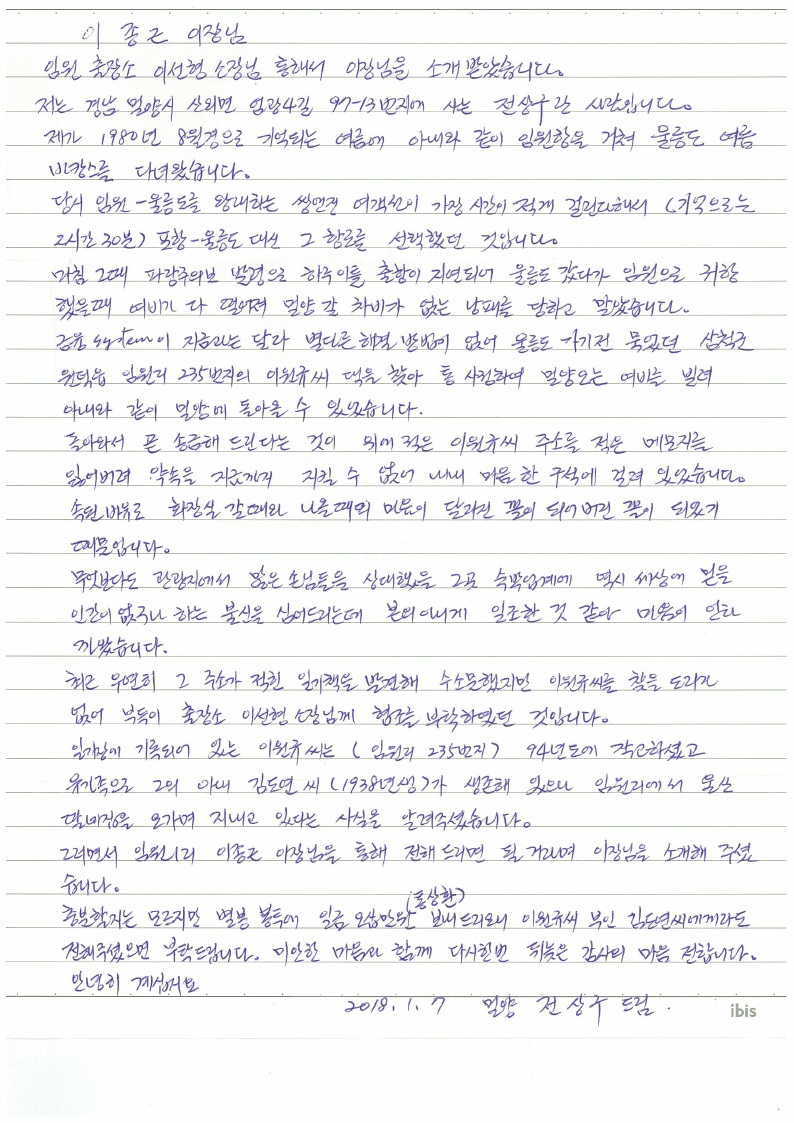 이 종근 이장님
임원 출장소 이선형 소장님 통해서 이장님을 소개 받았습니다.
저는 경남 밀양시 산외면 엄광4길 97-13번지에 사는 전상구란 사람입니다.
제가 1980년 8월경으로 기억되는 여름에 아내와 같이 임원항을 거쳐 울릉도 여름
바캉스를 다녀왔습니다.
당시 임원-울릉도를 왕래하는 쌍연전 여객선이 가장 시간이 적게 걸린다해서 (기억으로는
2시간 30분) 포항-울릉도 대신 그 항로를 선택했던 것입니다.
마침 그때 파랑주의보 발령으로 하루이틀 출항이 지연되어 울릉도 갔다가 임원으로 귀항
했을때 여비가 다 떨어져 밀양 갈 차비가 없는 낭패를 당하고 말았습니다.
금융 system이 지금과는 달라 별다른 해결 방법이 없어 울릉도 가기전 묵었던 삼척군
원덕읍 임원리 235번지의 이원규씨 댁을 찾아 통 사정하여 밀양오는 여비를 빌려
아내와 같이 밀양에 돌아올 수 있었습니다.
돌아와서 곧 송금해 드린다는 것이 위에 적은 이원규씨 주소를 적은 메모지를
잃어버려 약속을 지금까지 지킬 수 없어 내내 마음 한 구석에 걸려 있었습니다.
속된 비유로 화장실 갈때와 나올때의 마음이 달라진 꼴이 되어 버린 꼴이 되었기
때문입니다.
무엇보다도 관광지에서 많은 손님들을 상대했을 그곳 숙박업계에 역시 세상에 믿을
인간이 없구나 하는 불신을 심어드리는데 본의 아니게 일조한 것 같아 마음이 안타
까웠습니다.
최근 우연히 그 주소가 적힌 일기책을 발견해 수소문했지만 이원규씨를 찾을 도리가
없어 부득이 출장소 이선형 소장님께 협조를 부탁하였던 것입니다.
일기장에 기록되어 있는 이원규씨는 (임원리 235번지) 94년도에 작고하셨고
유가족으로 그의 아내 김도연 씨 (1938년생)가 생존해 있으나 임원리에서 울산
딸네집을 오가며 지내고 있다는 사실을 알려주셨습니다.
그러면서 임원1리 이종근 이장님을 통해 전해 드리면 될 거라며 이장님을 소개해 주셨
습니다.
(통상환)
충분할지는 모르지만 별봉 봉투에 일금 오십만원 보내드리오니 이원규씨 부인 김도연씨에게라도
전해주셨으면 부탁드립니다. 미안한 마음과 함께 다시한번 뒤늦은 감사의 마음 전합니다.
안녕히 계십시요
2018. 1. 7 밀양 전상구 드림.
ibis